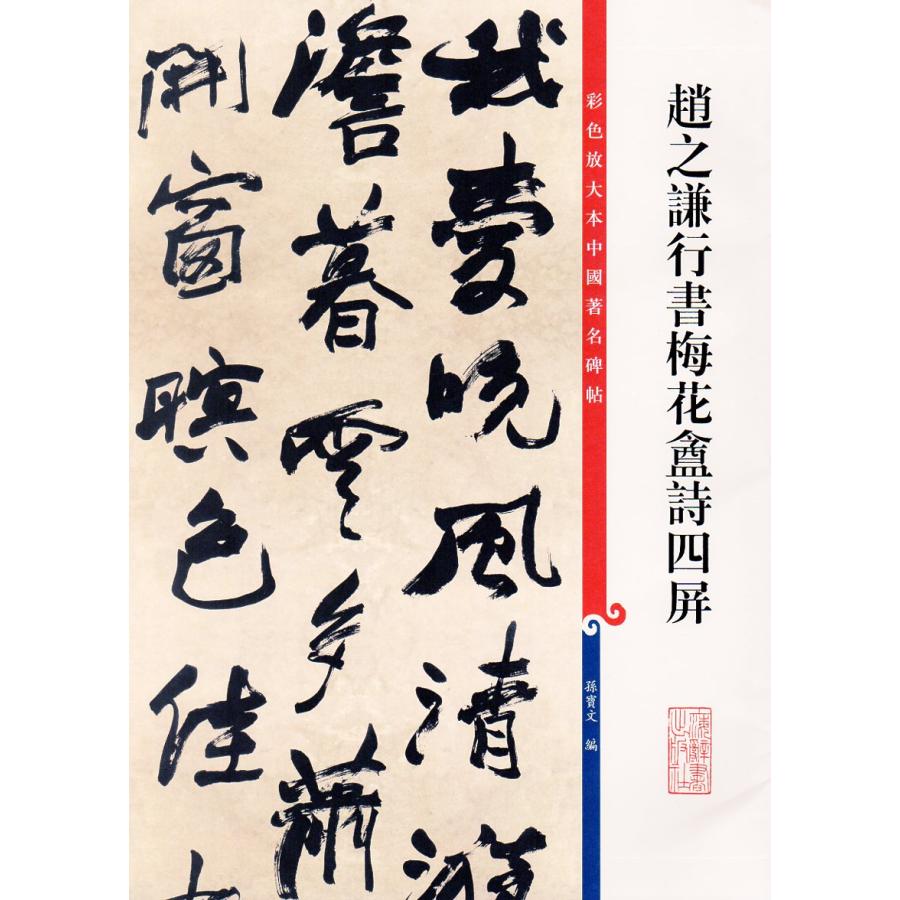 趙之謙行書梅花盦詩四屏
彩色放大本中國著名碑帖
孫寶文 編
我愛晚風清
澹暮雲多蕭
開窗暝色佳